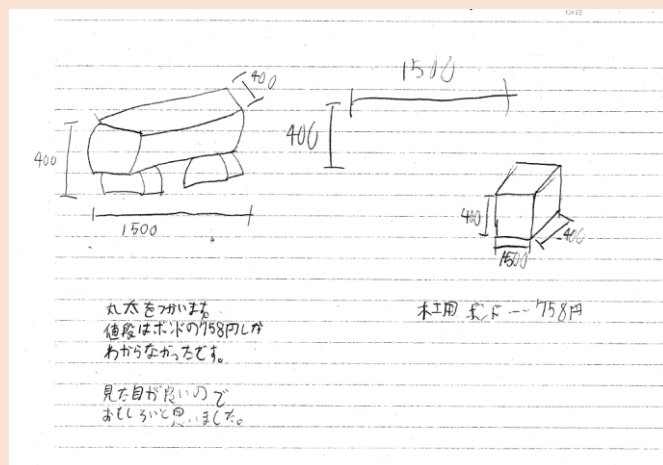 400
1500
400
400
400
1500
400
1500
400
丸太をつかいます
値段はボンドの758円しか
わからなかったです。
見た目が良いので
おもしろいと思いました。
木工用 ボンド --- 758円